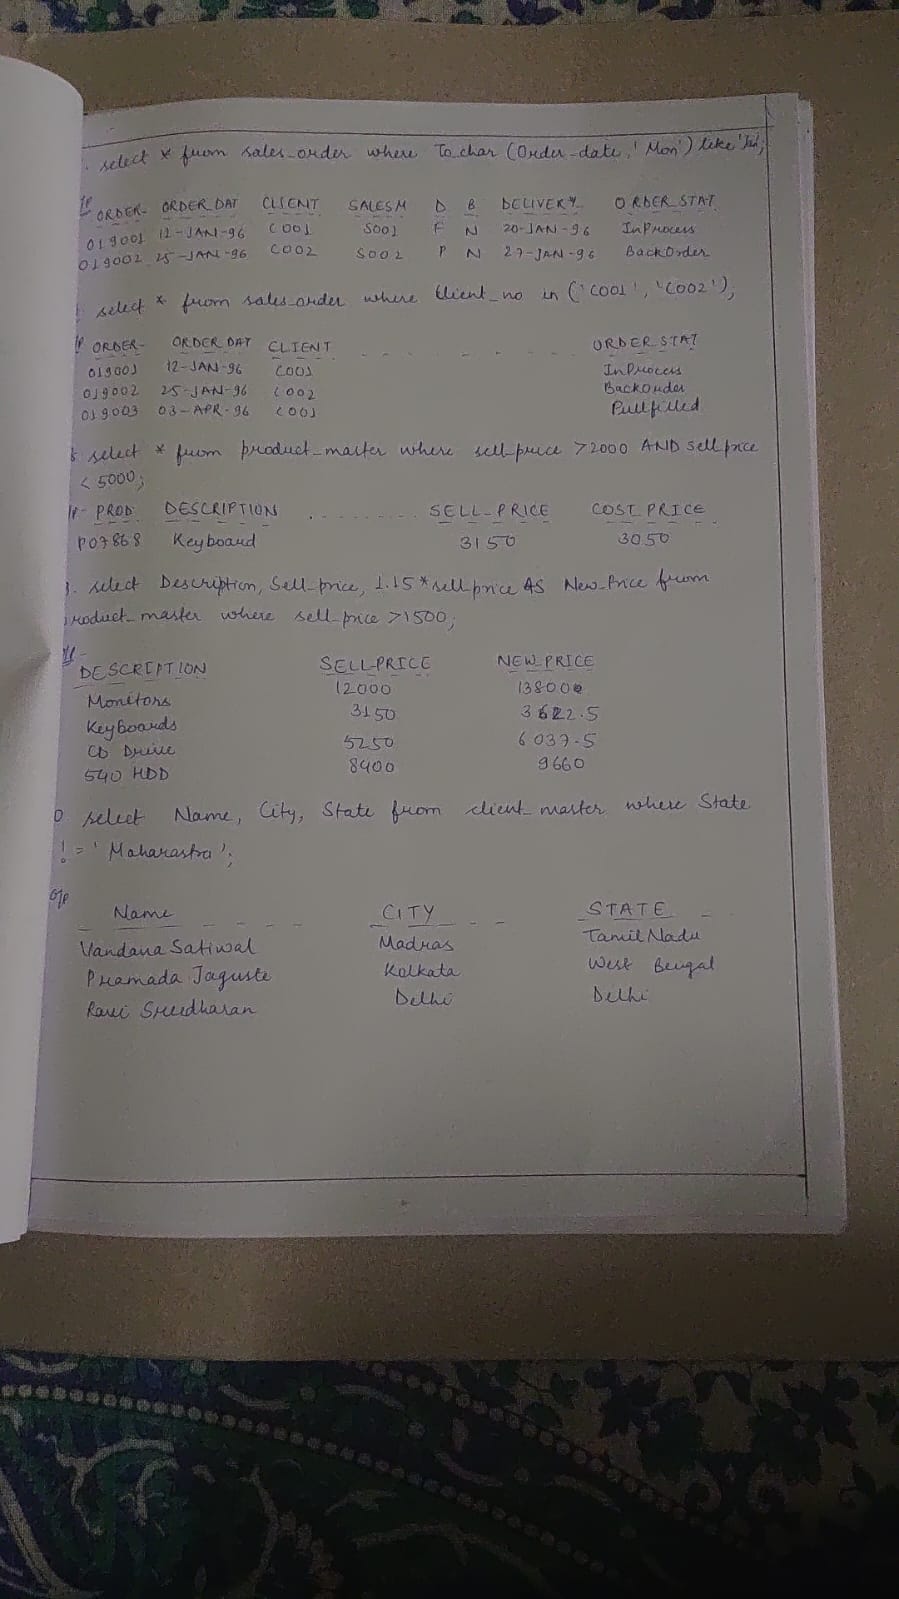 select * from sales_order where To_char (Order_date, 'Mon') like 'Jan';
ORDER- ORDER DAT CLIENT SALESM D B DELIVERY ORDER STAT
019001 12-JAN-96 C001 S001 F N 20-JAN-96 InProcess
019002 25-JAN-96 C002 S002 P N 27-JAN-96 BackOrder
select * from sales_order where Client_no in ('C001', 'C002');
ORDER- ORDER DAT CLIENT - - - - - - - ORDER STAT
019001 12-JAN-96 C001 InProcess
019002 25-JAN-96 C002 BackOrder
019003 03-APR-96 C001 Fullfilled
select * from product_master where sell_price >2000 AND sell_price
< 5000;
PROD DESCRIPTION ......... SELL_PRICE COST_PRICE
P07868 Keyboard 3150 3050
select Description, Sell_price, 1.15*sell_price AS New_Price from
product_master where sell_price >1500;
DESCRIPTION SELL_PRICE NEW_PRICE
Monitors 12000 13800
Keyboards 3150 3622.5
CD Drive 5250 6037.5
540 HDD 8400 9660
select Name, City, State from client_master where State
!= 'Maharastra';
O/P
Name CITY STATE
Vandana Satiwal Madras Tamil Nadu
Pramada Jaguste Kolkata West Bengal
Ravi Sreedharan Delhi Delhi